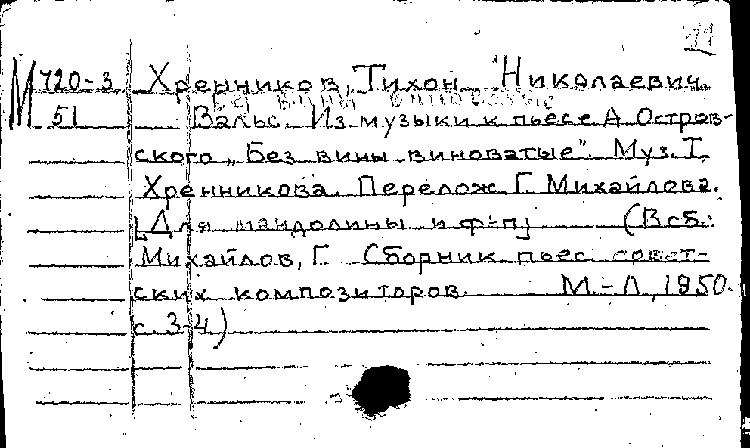 М 720-3 Хренников, Тихон Николаевич
Без вины виноватые
51 Вальс. Из музыки к пьесе А. Остров-
ского „Без вины виноватые" Муз. Т.
Хренникова. Перелож. Г. Михайлова.
[Для мандолины и ф-п] (В сб.:
Михайлов, Г. Сборник пьес совет-
ских композиторов. М.-Л., 1950.
с. 3-4)